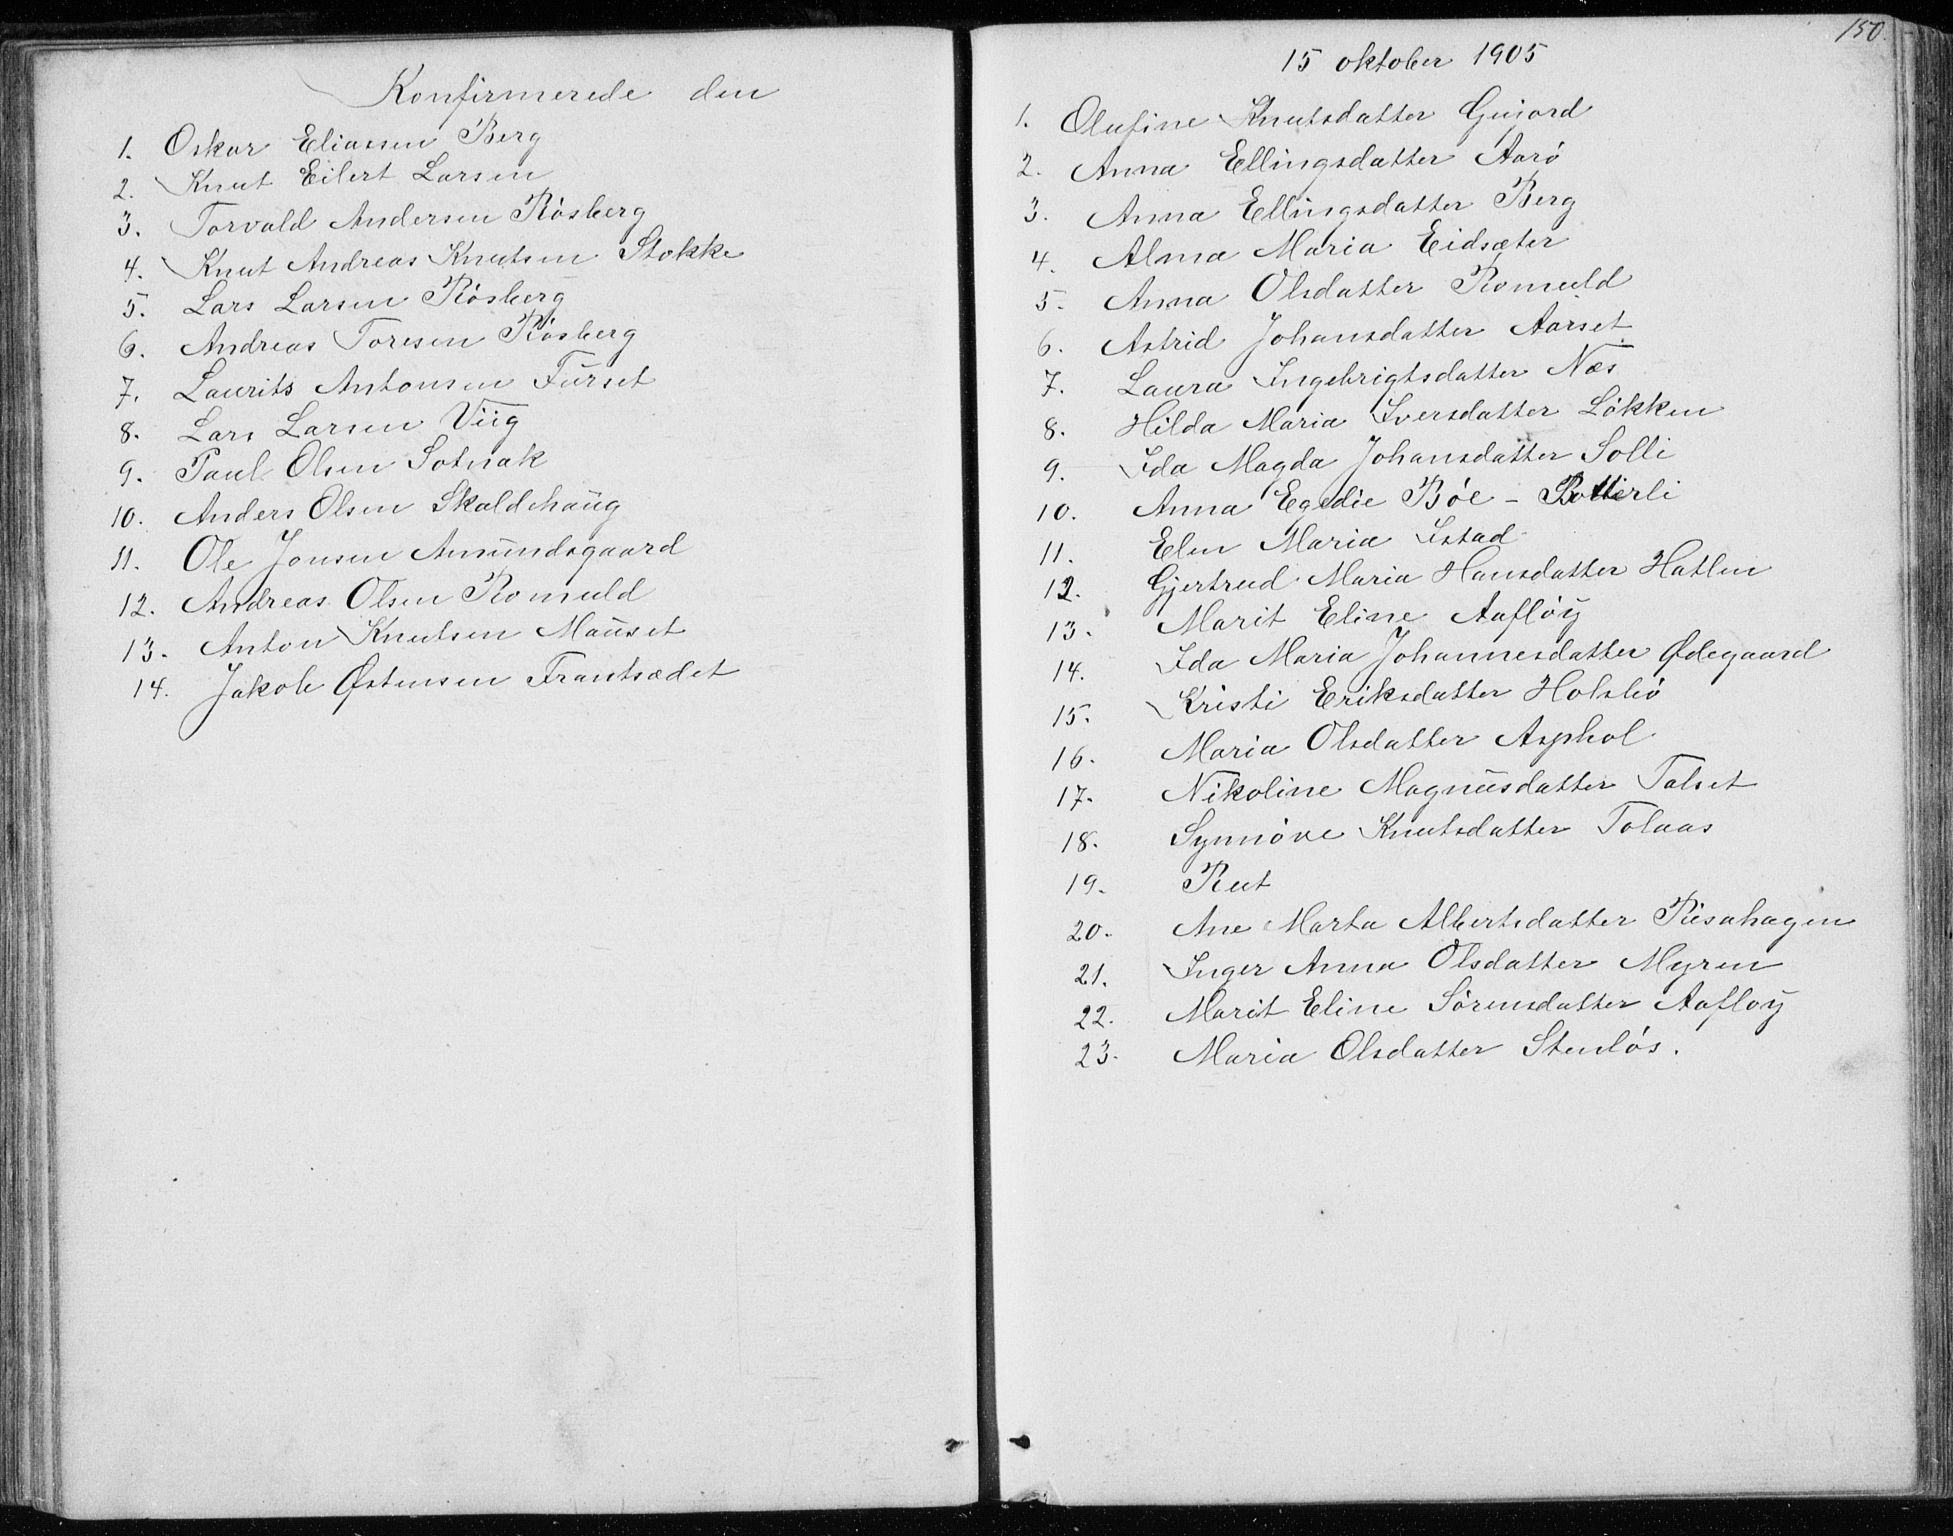 Konfirmerede den
1. Oskar Eliassen Berg
2. Knut Eilert Larsen
3. Torvald Andersen Røsberg
4. Knut Andreas Knutsen Stokke
5. Lars Larsen Røsberg
6. Andreas Toresen Røsberg
7. Laurits Antonsen Furset
8. Lars Larsen Viig
9. Paul Olsen Sotnak
10. Anders Olsen Skaldehaug
11. Ole Jonsen Amundsgaard
12. Andreas Olsen Romuld
13. Anton Knutsen Mauset
14. Jakob Østensen Frantsædet
150.
15 oktober 1905
1. Olufine Knutsdatter Gujord
2. Anna Ellingsdatter Aarø
3. Anna Ellingsdatter Berg
4. Alma Maria Eidsæter
5. Anna Olsdatter Romuld
6. Astrid Johansdatter Aarset
7. Laura Ingebrigtsdatter Næs
8. Hilda Maria Iversdatter Løkken
9. Ida Magda Johansdatter Solli
10. Anna Egedie Bøe -
11. Elen Maria Istad
12. Gjertrud Maria Hansdatter Hatlen
13. Marit Eline Aafløy
14. Ida Maria Johannesdatter Ødegaard
15. Kristi Eriksdatter Holsbø
16. Maria Olsdatter Asphol
17. Nikoline Magnusdatter Talset
18. Synnøve Knutsdatter Tolaas
19. Rut
20. Ane Marta Albertsdatter Risahagen
21. Inger Anna Olsdatter Myren
22. Marit Eline Sørensdatter Aafloy
23. Maria Olsdatter Stenløs.